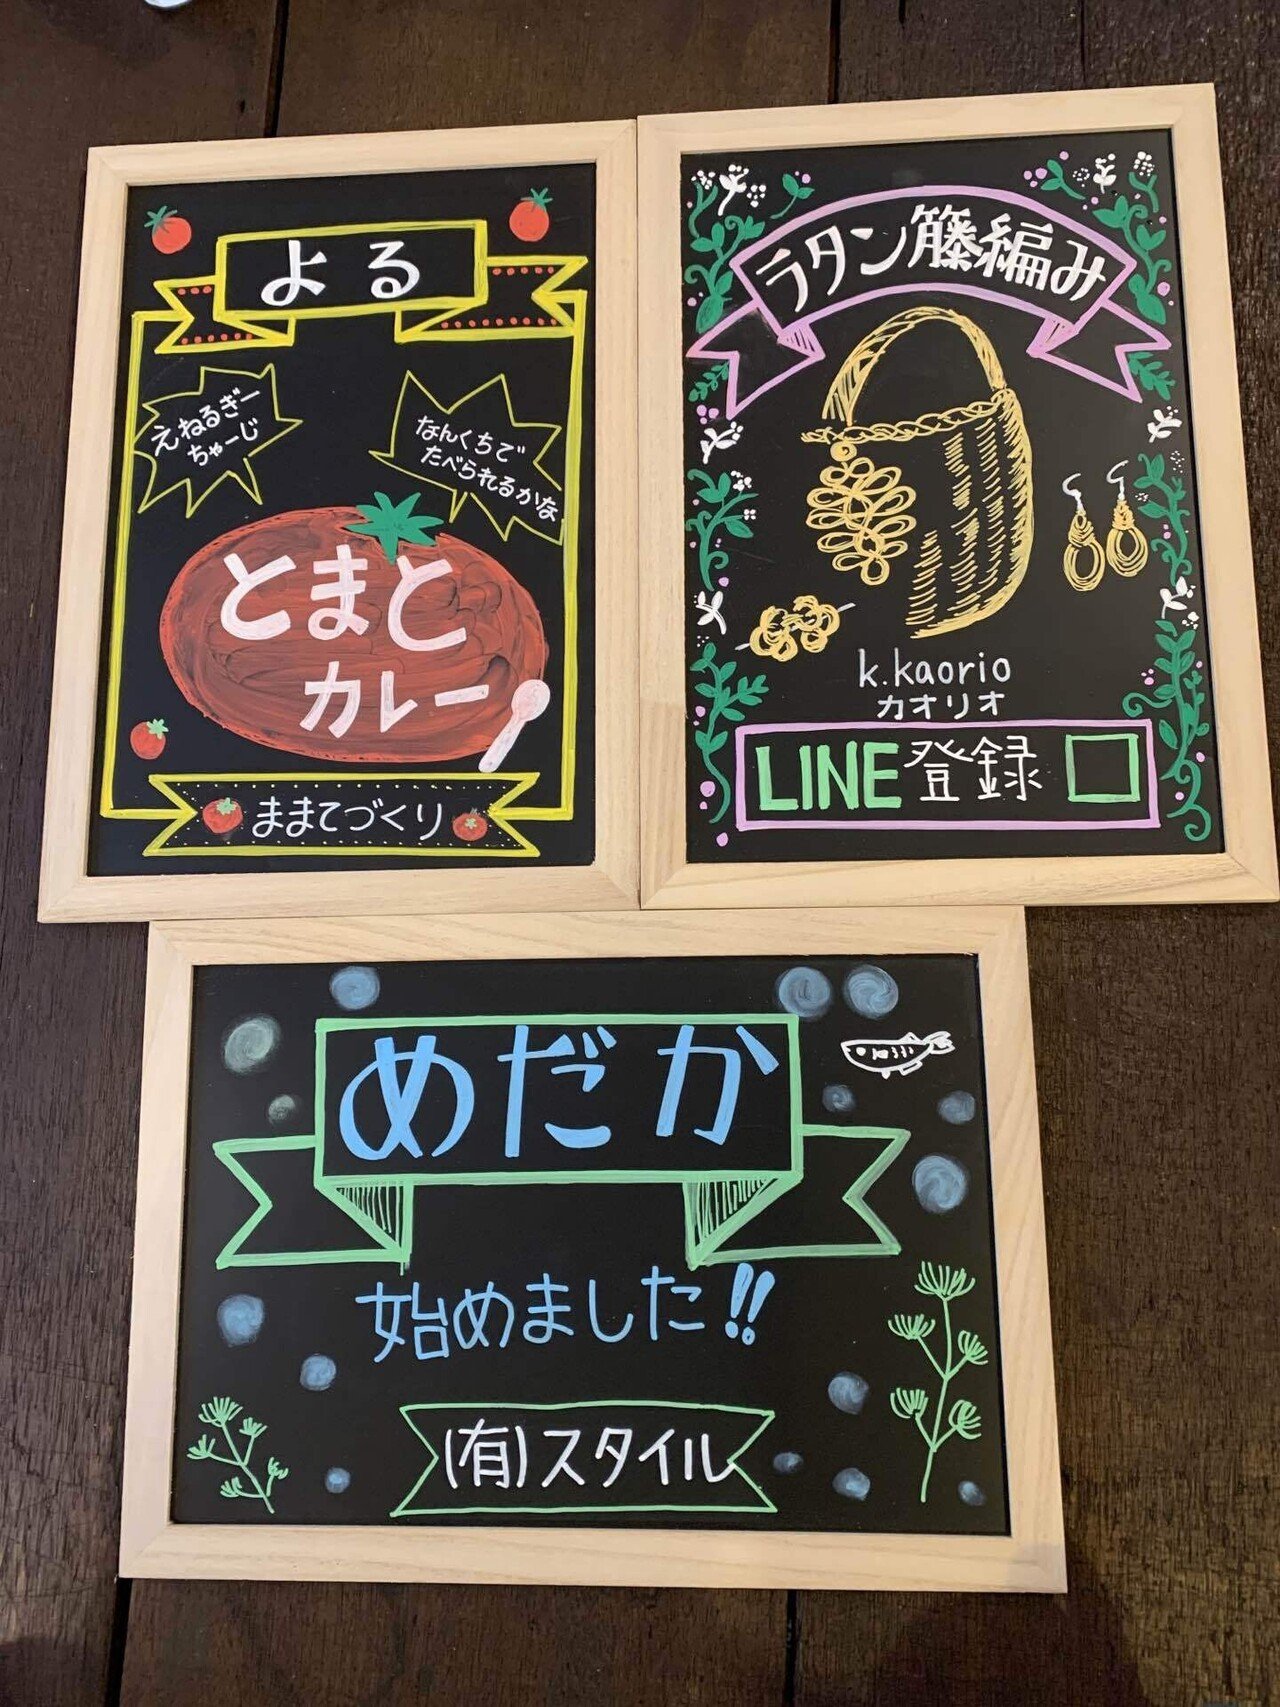 よる
えねるぎー
ちゃーじ
なんくちで
たべられるかな
とまと
カレー
ままてづくり
ラタン籐編み
k.kaorio
カオリオ
LINE登録
めだか
始めました!!
(有)スタイル